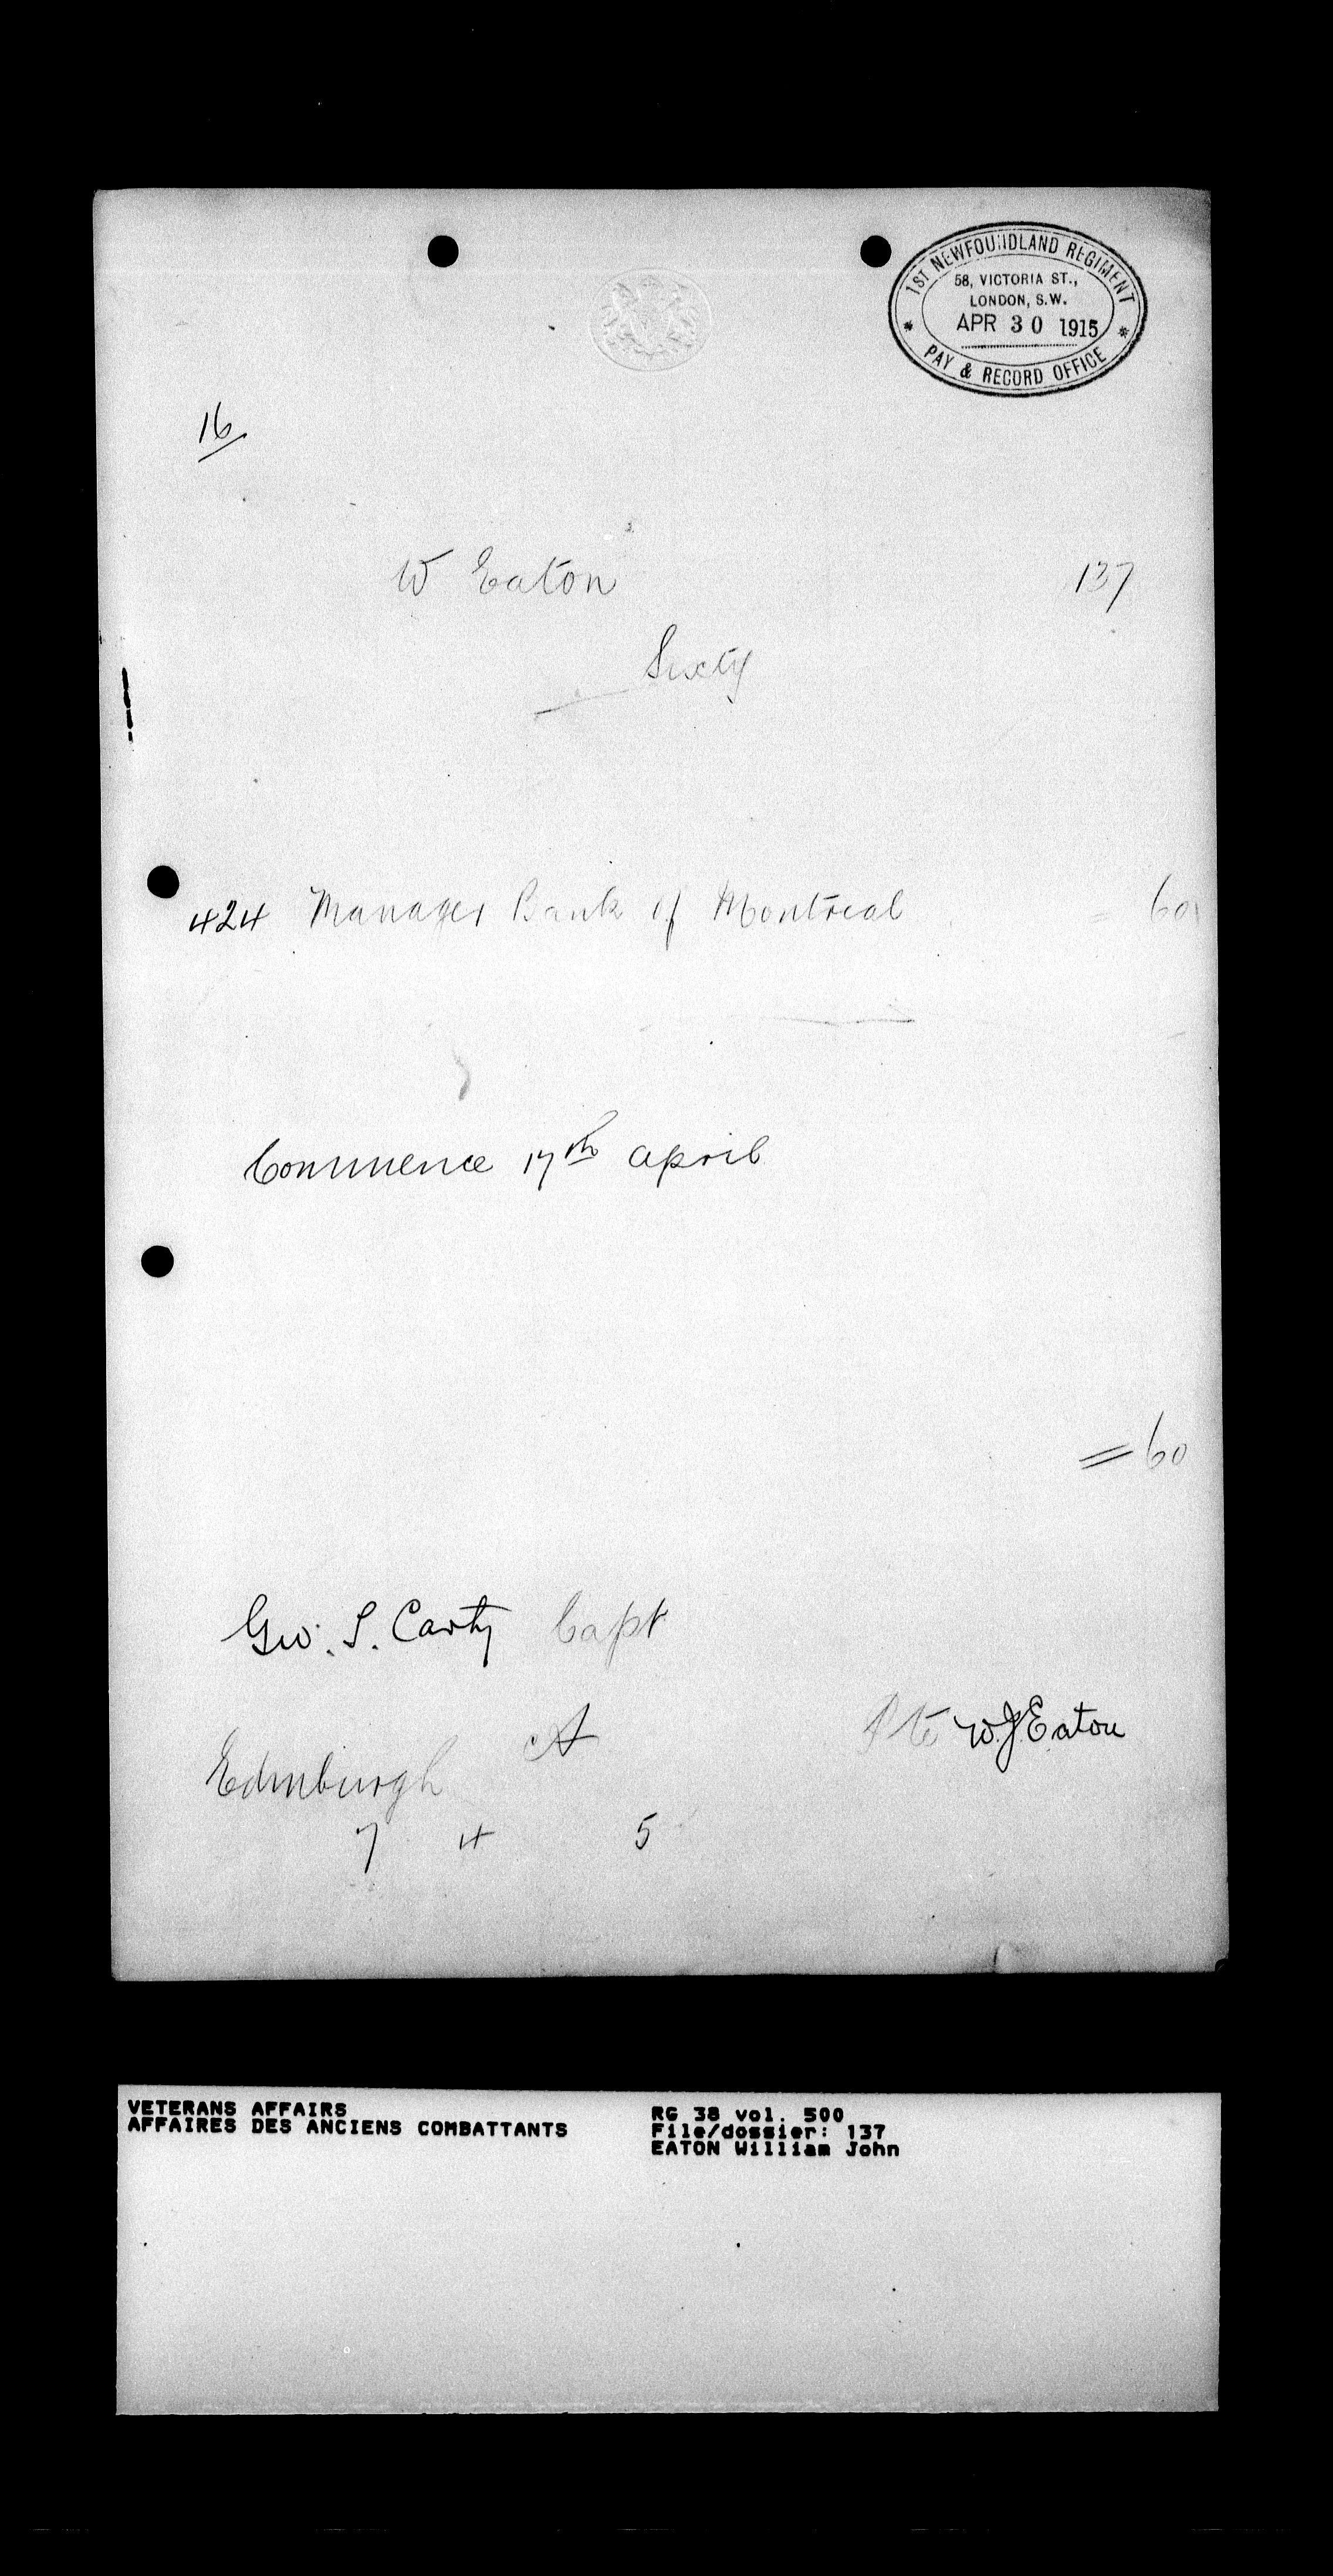 1ST NEWFOUNDLAND REGIMENT
58, VICTORIA ST.,
LONDON, S.W.
APR 30 1915
* PAY & RECORD OFFICE *
16
W Eaton 137
Sixty
424 Manager Bank of Montreal = 60
Commence 17th April
= 60
Geo. S. Carty Capt
Pte W.J. Eaton
A
Edinburgh
7 4 5
VETERANS AFFAIRS
AFFAIRES DES ANCIENS COMBATTANTS
RG 38 vol. 500
File/dossier: 137
EATON William John